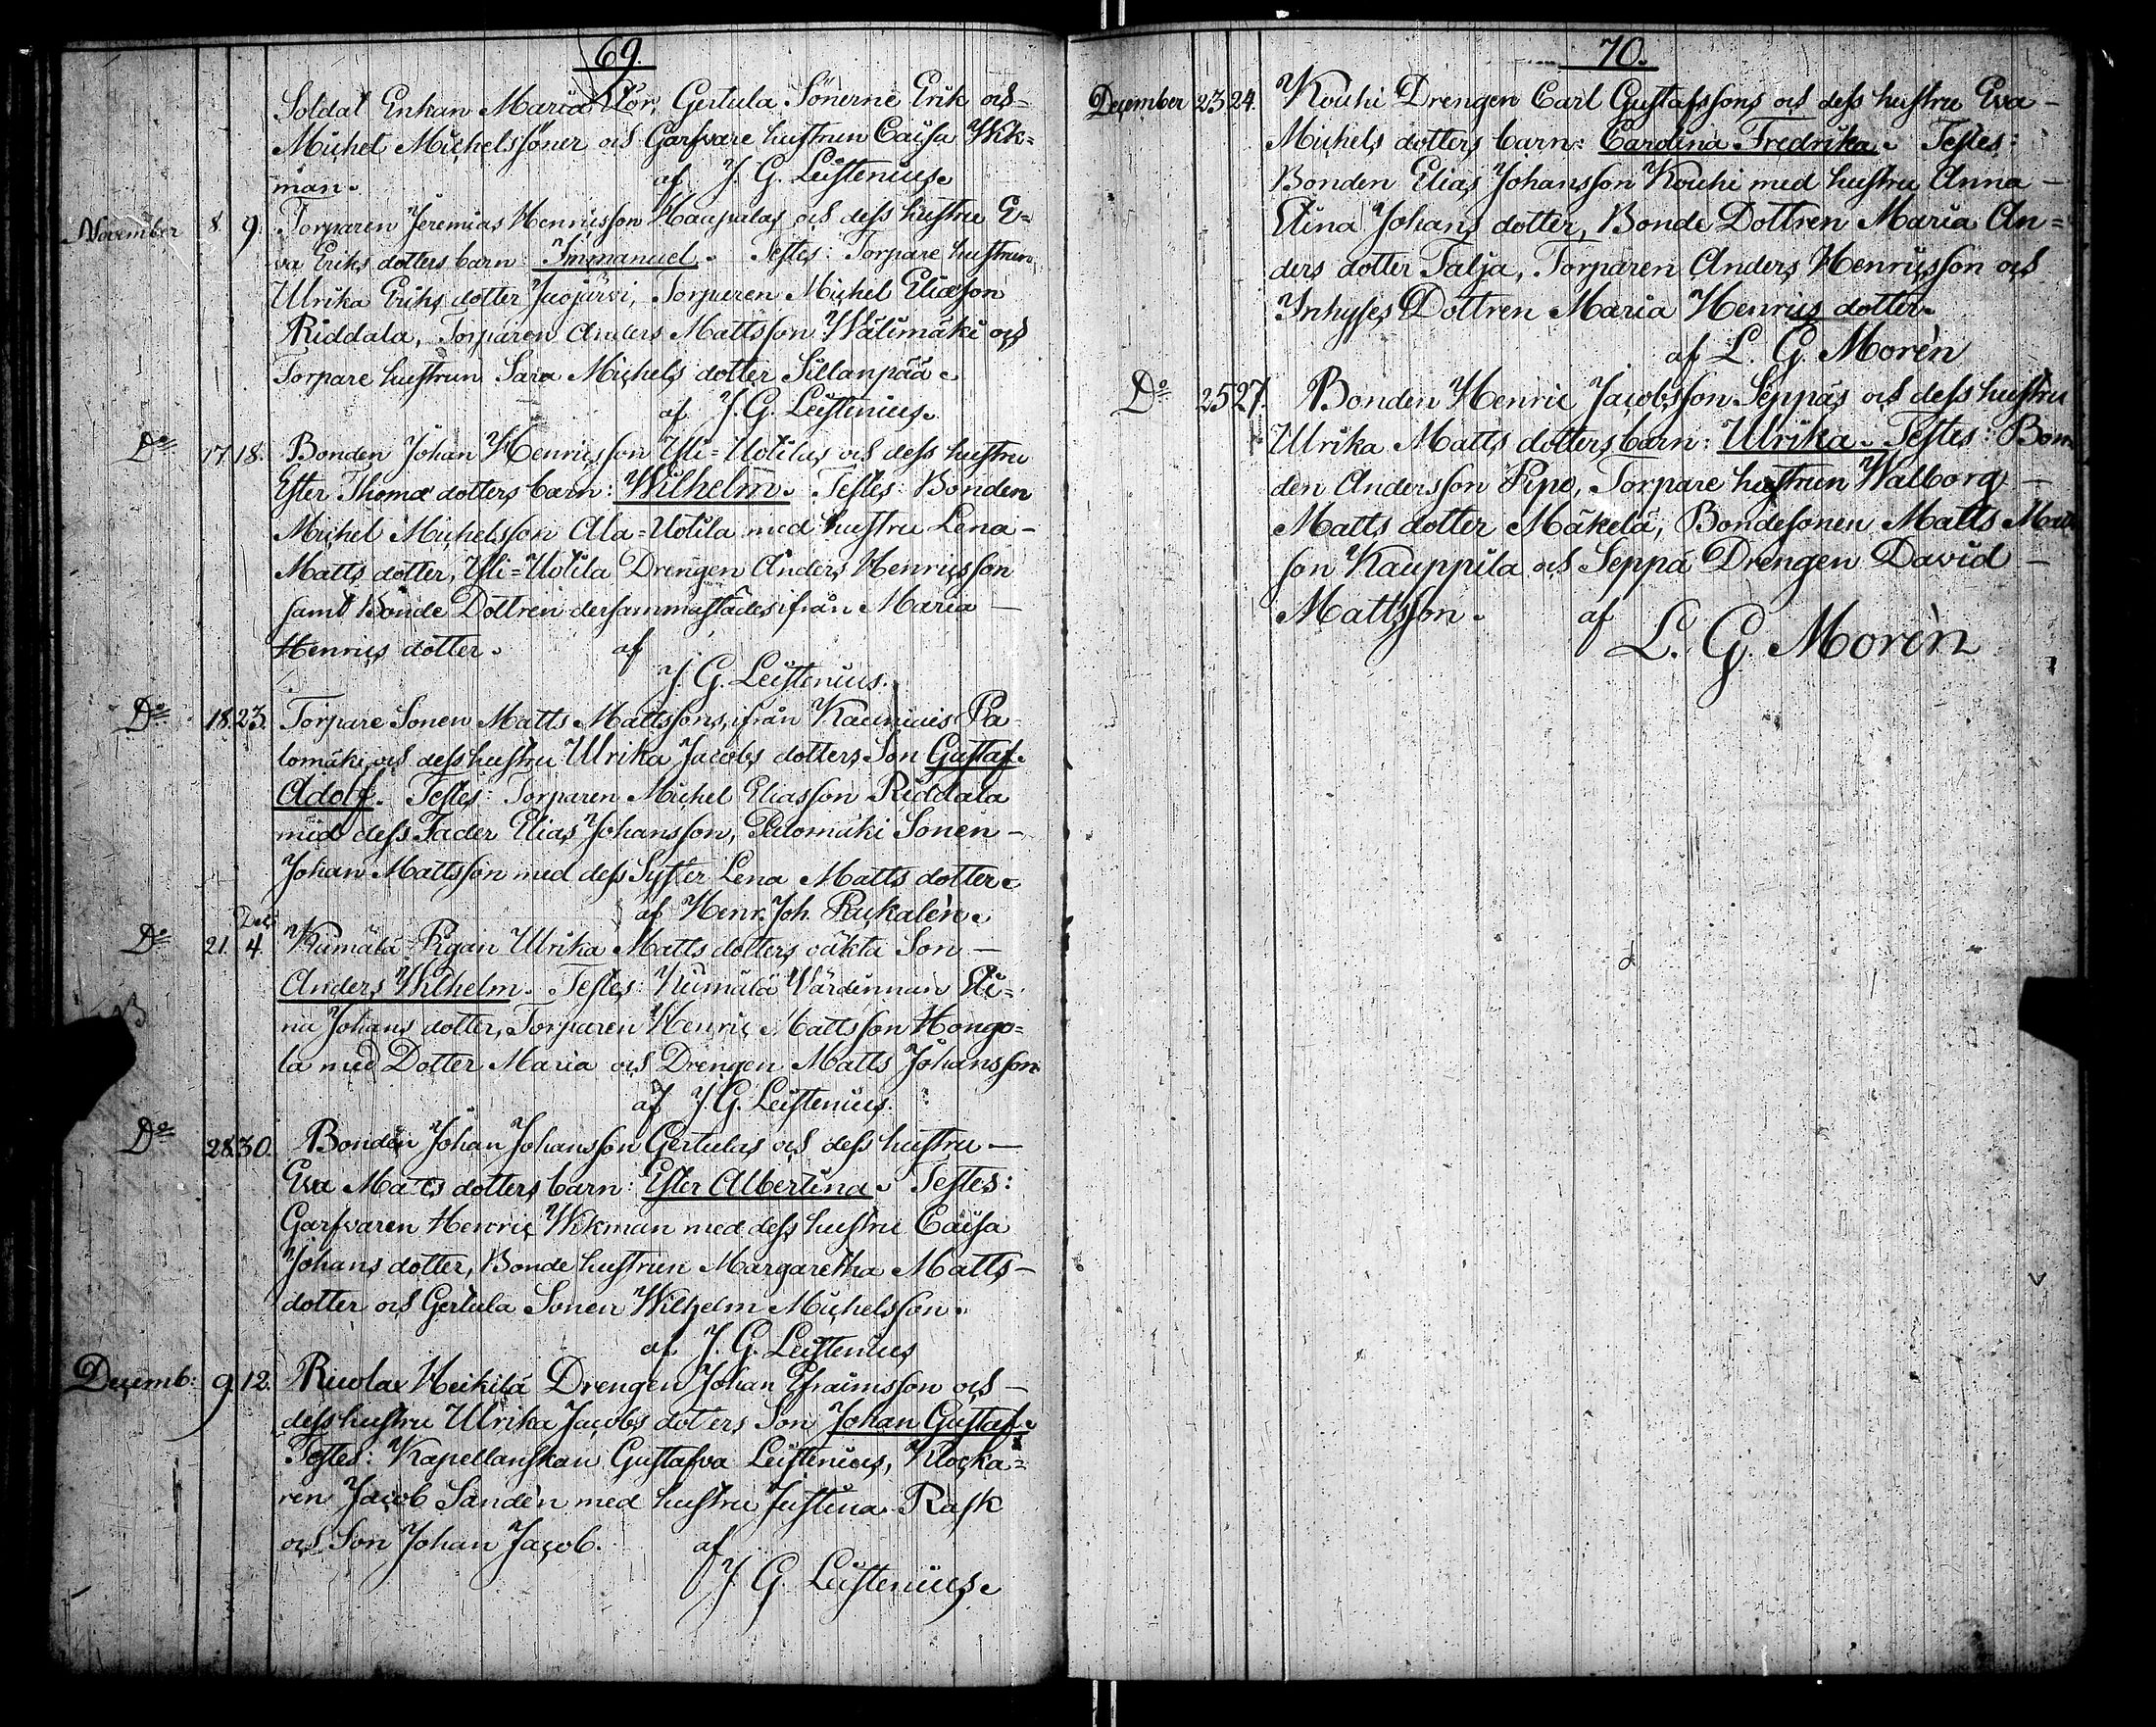 69.
Soldat Enkan Maria Stor, Gertula Sönerne Erik och
Michel Michelssöner och Garfvare hustrun Caisa Wik=
man. af J. G. Leistenius.
November 8. 9. Torparen Jeremias Henricsson Haapalas och dess hustru E=
va Eriks dotters barn: Immanuel. Testes: Torpare hustrun
Ulrika Eriks dotter Jaojärvi, Torparen Michel Eliæson
Riddala, Torparen Anders Mattsson Wälimäki och
Torpare hustrun Sara Michels dotter Sillanpää.
af J. G. Leistenius.
Do 17. 18. Bonden Johan Henricsson Yli=Uotilas och dess hustru
Ester Thomæ dotters barn: Wilhelm. Testes: Bonden
Michel Michelsson Ala=Uotila med hustru Lena
Matts dotter, Yli=Uotila Drengen Anders Henricsson
samt Bonde Dottren dersammastädes ifrån Maria
Henrics dotter. af
J. G. Leistenius.
Do 18. 23. Torpare Sonen Matts Mattssons, ifrån Kauniais Pa
lomäki, och dess hustru Ulrika Jacobs dotters Son Gustaf
Adolf. Testes: Torparen Michel Eliasson Riddala
med dess Fader Elias Johansson, Palomäki Sonen
Johan Mattsson med dess Syster Lena Matts dotter.
af Henr. Joh. Packalèn.
Dec
Do 21. 4. Kumälä Pigan Ulrika Matts dotters oäkta Son
Anders Wilhelm. Testes: Kumälä Värdinnan Sti=
na Johans dotter, Torparen Henric Mattsson Hongo=
la med Dotter Maria och Drengen Matts Johansson
af J. G. Leistenius.
Do 28. 30. Bonden Johan Johansson Gertulas och dess hustru
Eva Matts dotters barn: Ester Albertina. Testes:
Garfvaren Henric Wikman med dess hustru Caisa
Johans dotter, Bonde hustrun Margaretha Matts
dotter och Gertula Sonen Wilhelm Michelsson.
af J. G. Leistenius
Decemb: 9. 12. Heikilä Drengen Johan Efraimsson och
dess hustru Ulrika Jacobs dotters Son Johan Gustaf.
Testes: Kapellanskan Gustafva Leistenius, Klocka=
ren Jacob Sandèn med hustru Justina Rask
och Son Johan Jacob. af
J. G. Leistenius.
70.
December 23 24. Kouhi Drengen Carl Gustafssons och dess hustru Eva
Michels dotters barn: Carolina Fredrika. Testes:
Bonden Elias Johansson Kouhi med hustru Anna
Stina Johans dotter, Bonde Dottren Maria An=
ders dotter Talja, Torparen Anders Henricsson och
Inhyses Dottren Maria Henrics dotter.
af L. G. Morèn
Do 25 27. Bonden Henric Jacobsson Seppäs och dess hustru
Ulrika Matts dotters barn: Ulrika. Testes: Bon
den Andersson Pipo, Torpare hustrun Walborg
Matts dotter Mäkelä, Bondesonen Matts Matts
son Kauppila och Seppä Drengen David
Mattsson. af
L. G. Morèn